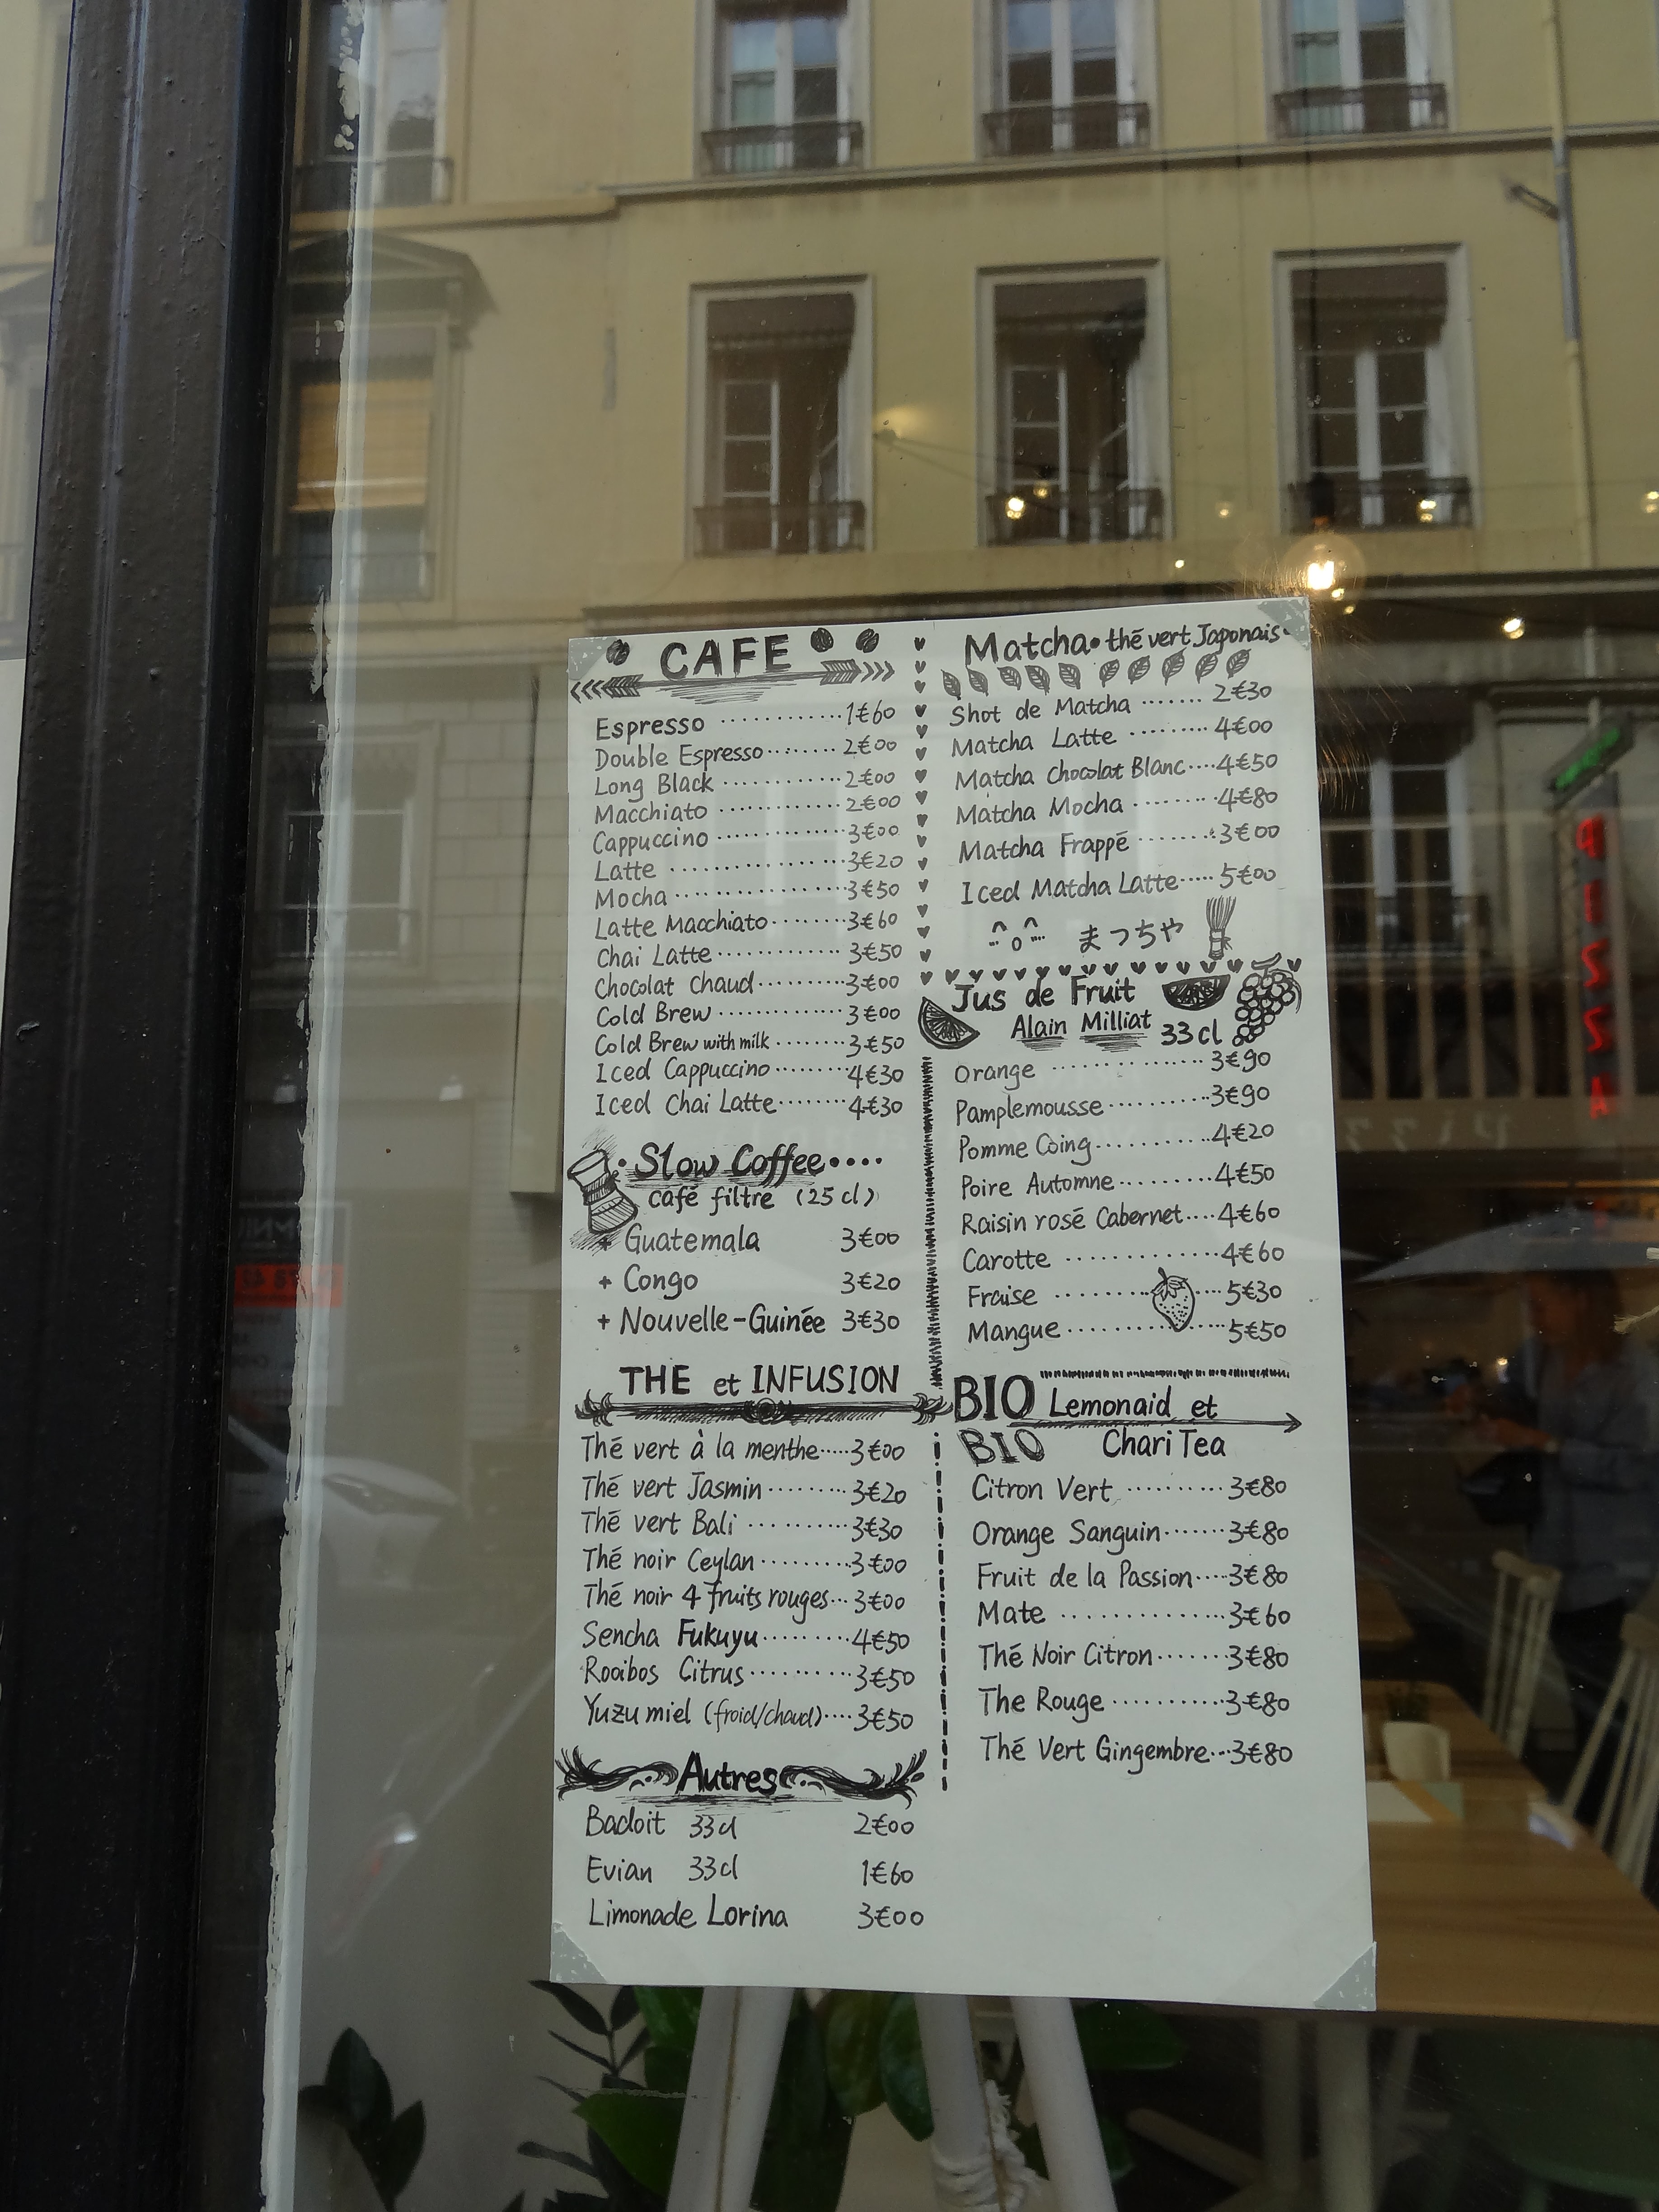 CAFE
Espresso ............1€60
Double Espresso.........2€00
Long Black ............2€00
Macchiato ............2€00
Cappuccino ............3€00
Latte ............3€20
Mocha ............3€50
Latte Macchiato.........3€60
Chai Latte............3€50
Chocolat Chaud.........3€00
Cold Brew ............3€00
Cold Brew with milk ........3€50
Iced Cappuccino.........4€30
Iced Chai Latte........4€30
Slow Coffee....
café filtre (25 cl)
+ Guatemala 3€00
+ Congo 3€20
+ Nouvelle-Guinée 3€30
THE et INFUSION
Thé vert à la menthe.....3€00
Thé vert Jasmin.........3€20
Thé vert Bali ..........3€30
Thé noir Ceylan..........3€00
Thé noir 4 fruits rouges...3€00
Sencha Fukuyu.........4€50
Rooibos Citrus..........3€50
Yuzu miel (froid/chaud)....3€50
Autres
Badoit 33cl 2€00
Evian 33cl 1€60
Limonade Lorina 3€00
Matcha• thé vert Japonais•
Shot de Matcha ....... 2€30
Matcha Latte .........4€00
Matcha Chocolat Blanc....4€50
Matcha Mocha .........4€80
Matcha Frappé .........3€00
Iced Matcha Latte..... 5€00
まっちゃ
Jus de Fruit
Alain Milliat 33cl
Orange ............3€90
Pamplemousse...........3€90
Pomme Coing...........4€20
Poire Automne..........4€50
Raisin rosé Cabernet....4€60
Carotte .............4€60
Fraise ............5€30
Mangue ............5€50
BIO Lemonaid et
BIO Chari Tea
Citron Vert ..........3€80
Orange Sanguin.......3€80
Fruit de la Passion....3€80
Mate .............3€60
Thé Noir Citron.......3€80
The Rouge ...........3€80
Thé Vert Gingembre...3€80
PIZZA